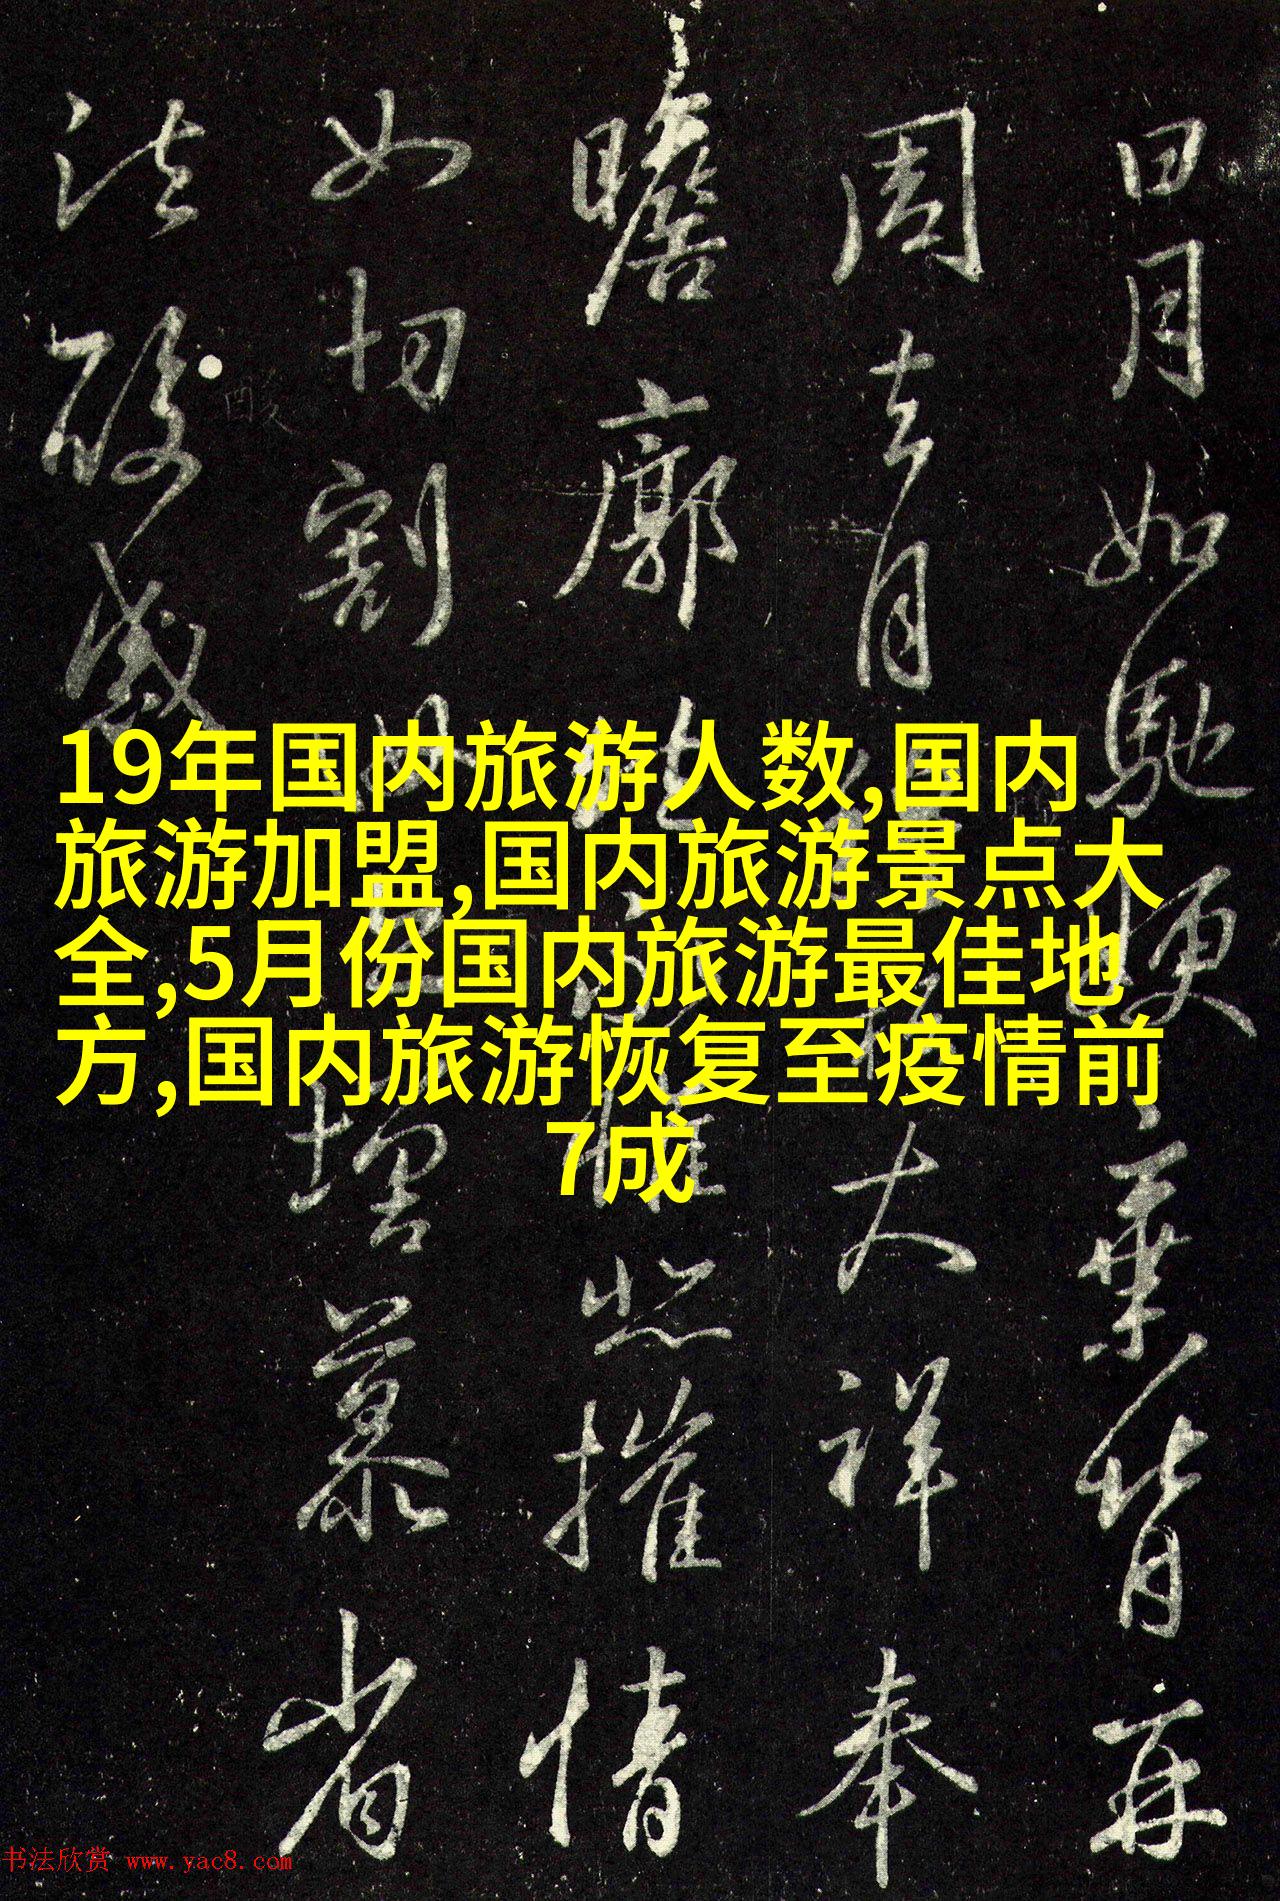 日月如馳嫂棄背再
周去月大祥奉
瞻廓惟悲摧情
如切割增慕省
酸感
19年国内旅游人数,国内
旅游加盟,国内旅游景点大
全,5月份国内旅游最佳地
方,国内旅游恢复至疫情前
7成
书法欣赏 www.yac8.com